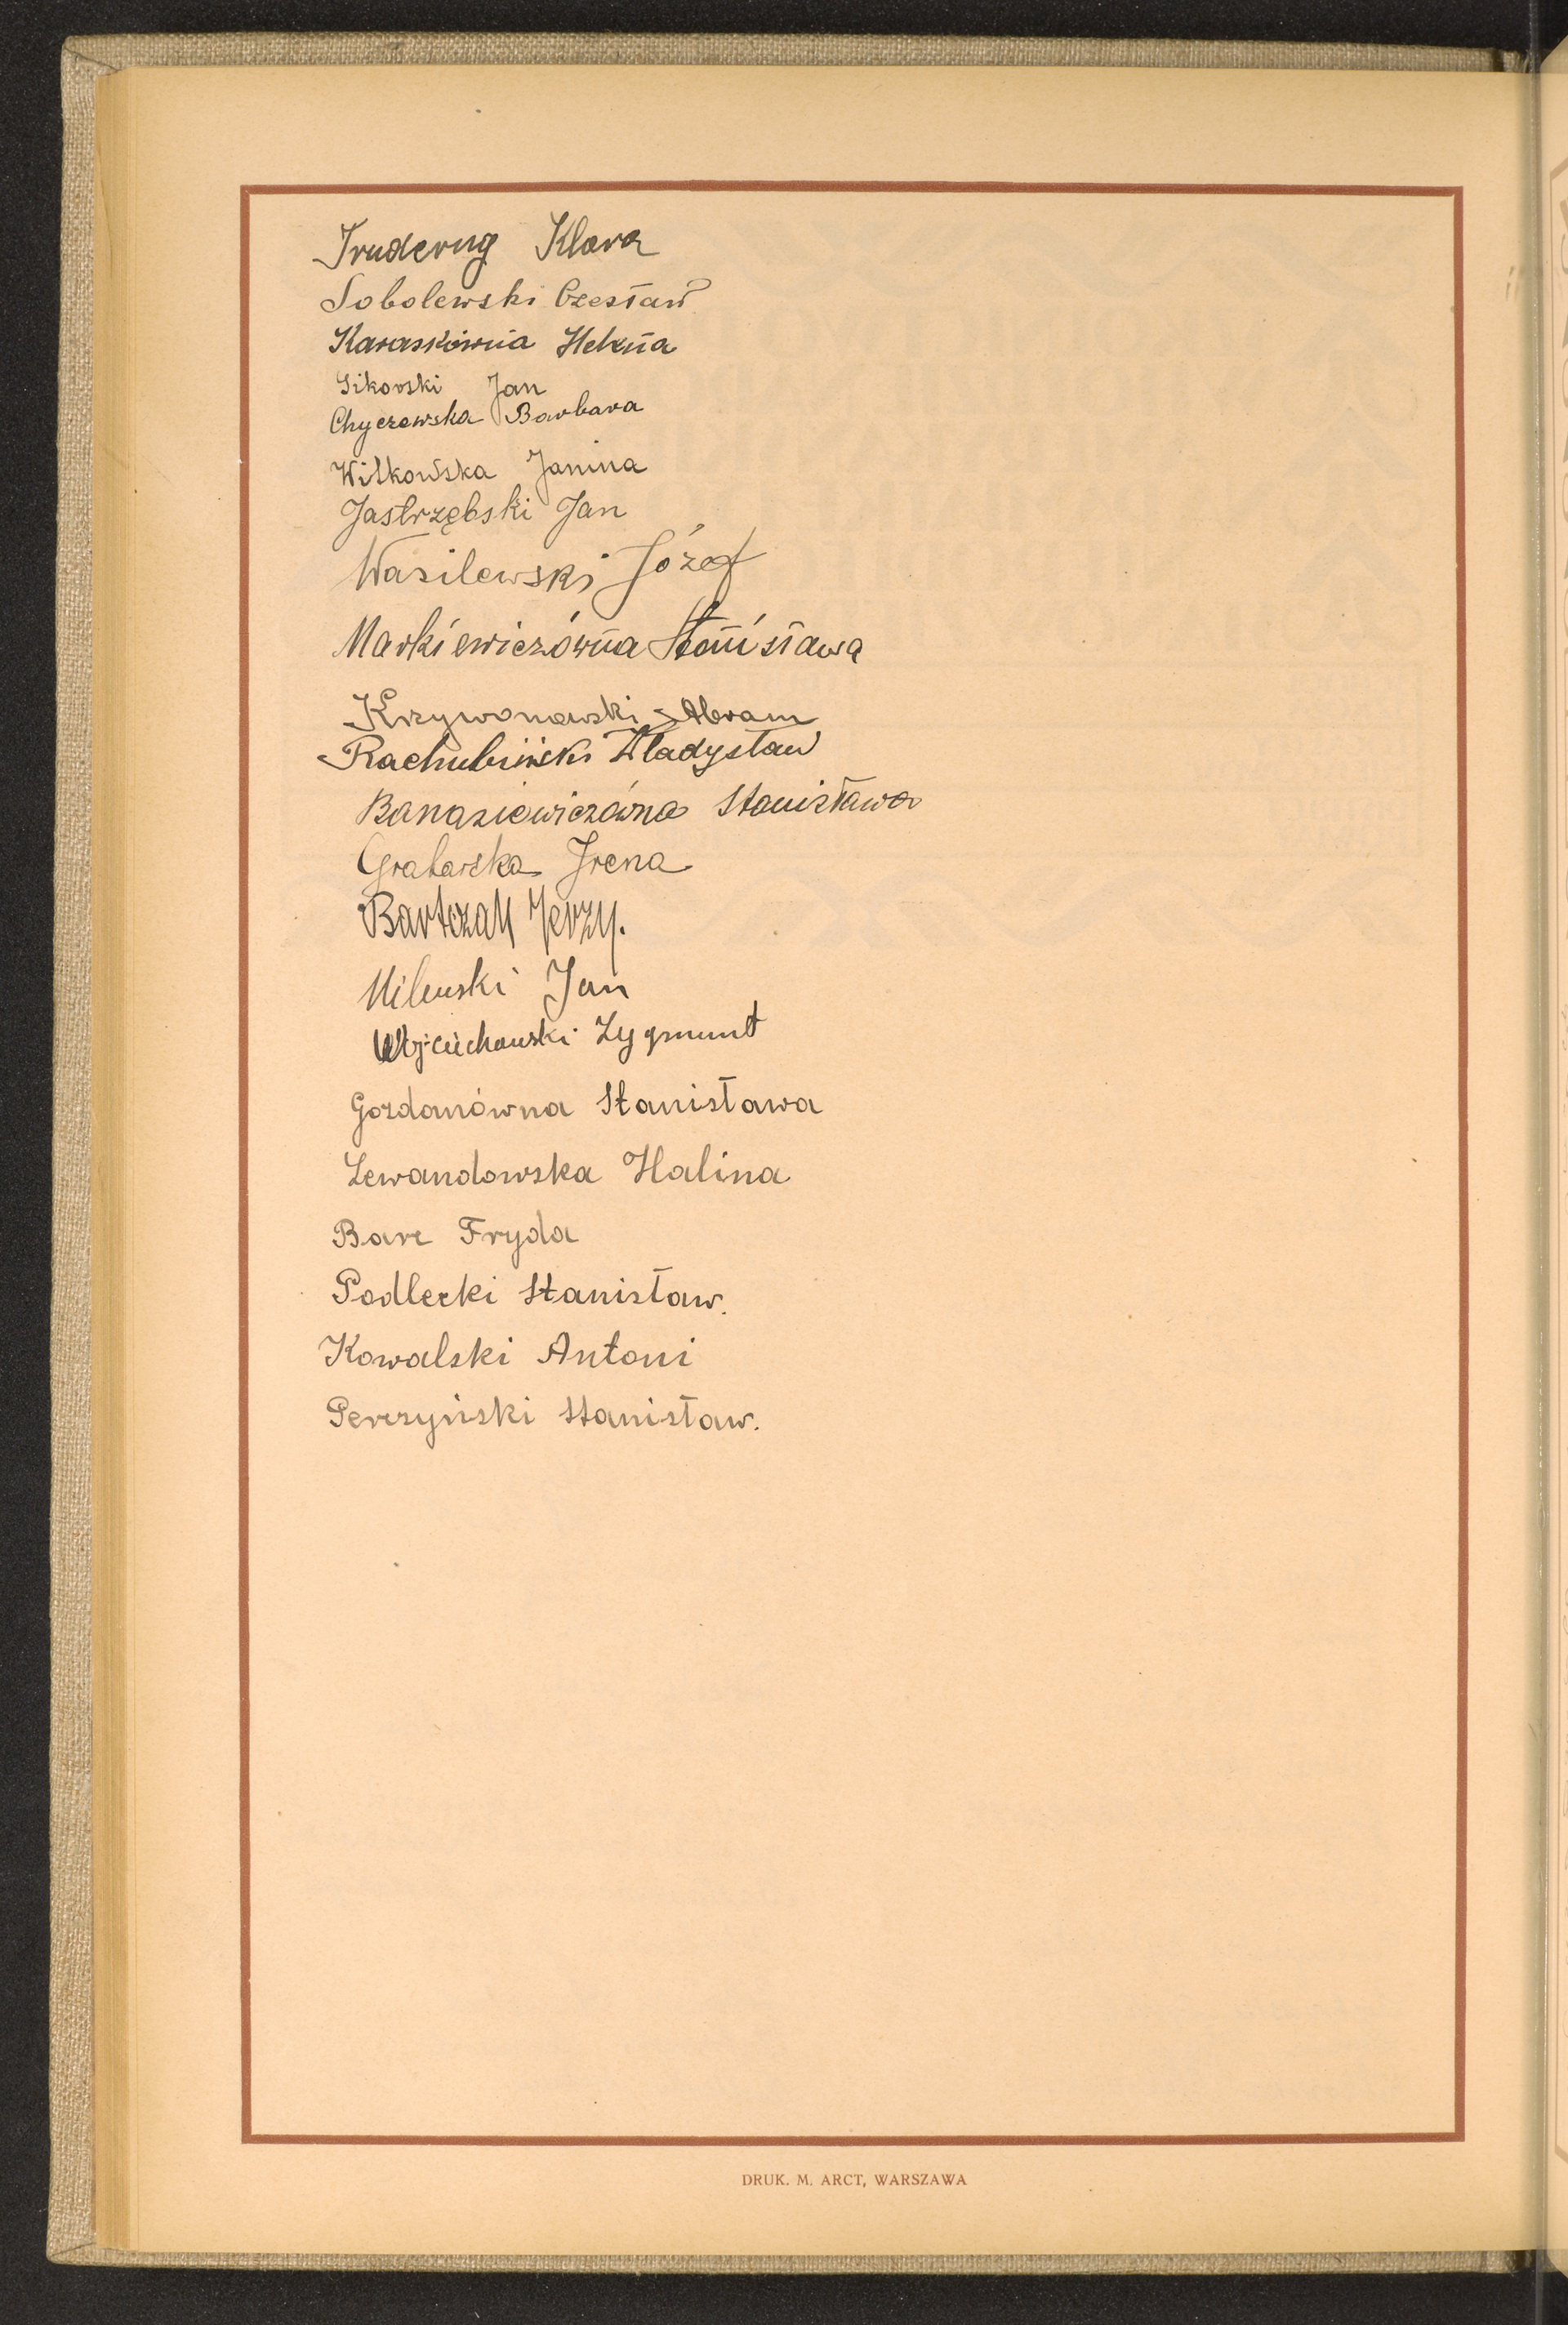 Truderug Klara
Sobolewski Czesław
Karaskówna Helena
Sikorski Jan
Chyczewska Barbara
Witkowska Janina
Jastrzębski Jan
Wasilewski Józef
Markiewiczówna Stanisława
Krzywonowski Abram
Rachubiński Władysław
Banasiewiczówna Stanisława
Grabarska Irena
Bartczak Jerzy.
Milewski Jan
Wojciechowski Zygmunt
Gozdanówna Stanisława
Lewandowska Halina
Fryda
Podlecki Stanisław.
Kowalski Antoni
Perczyński Stanisław.
DRUK. M. ARCT, WARSZAWA